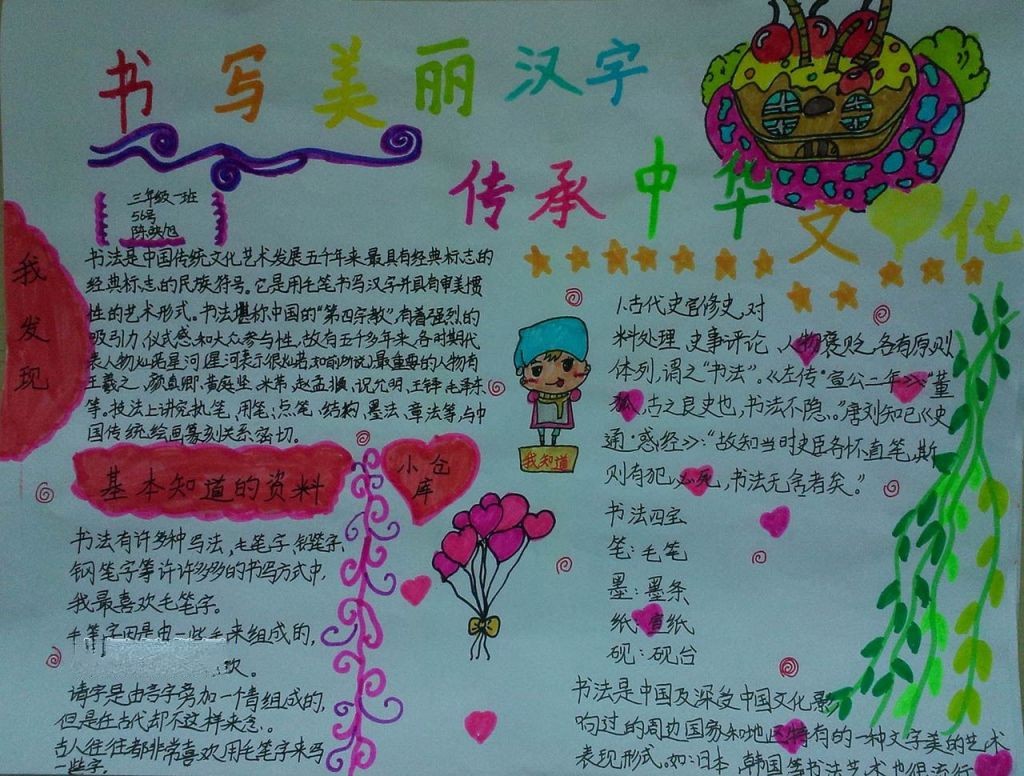 书写美丽汉字
传承中华文化
三年级一班
56号
陈映旭
我发现
书法是中国传统文化艺术发展五千年来最具有经典标志的
经典标志的民族符号。它是用毛笔书写汉字并具有审美惯
性的艺术形式。书法堪称中国的“第四宗教”,有着强烈的
吸引力,仪式感和大众参与性,故有五千多年来,各时期代
表人物灿若星河(星河表示很灿若,如前所说),最重要的人物有
王羲之、颜真卿、黄庭坚、米芾、赵孟頫、祝允明、王铎、毛泽东、
等。技法上讲究执笔、用笔、点笔、结构、墨法、章法等,与中
国传统绘画篆刻关系密切。
基本知道的资料
小仓
库
书法有许多种写法,毛笔字、铅笔字、
钢笔字等许许多多的书写方式中,
我最喜欢毛笔字。
来组成的,
欢。
请字是由言字旁加一个青组成的,
但是在古代却不这样来念。
古人往往都非常喜欢用毛笔字来写
一些字。
我知道
1.古代史官修史,对
料处理、史事评论、人物褒贬,各有原则
体列,谓之“书法”。《左传·宣公二年》:“董
狐,古之良史也,书法不隐。”唐刘知己《史
通·惑经》:“故知当时史臣各怀直笔,斯
则有犯必死,书法无舍者矣。”
书法四宝
笔:毛笔
墨:墨条
纸:宣纸
砚:砚台
书法是中国及深受中国文化影
响过的周边国家和地区特有的一种文字美的艺术
表现形式。如:日本、韩国等书法艺术也很流行